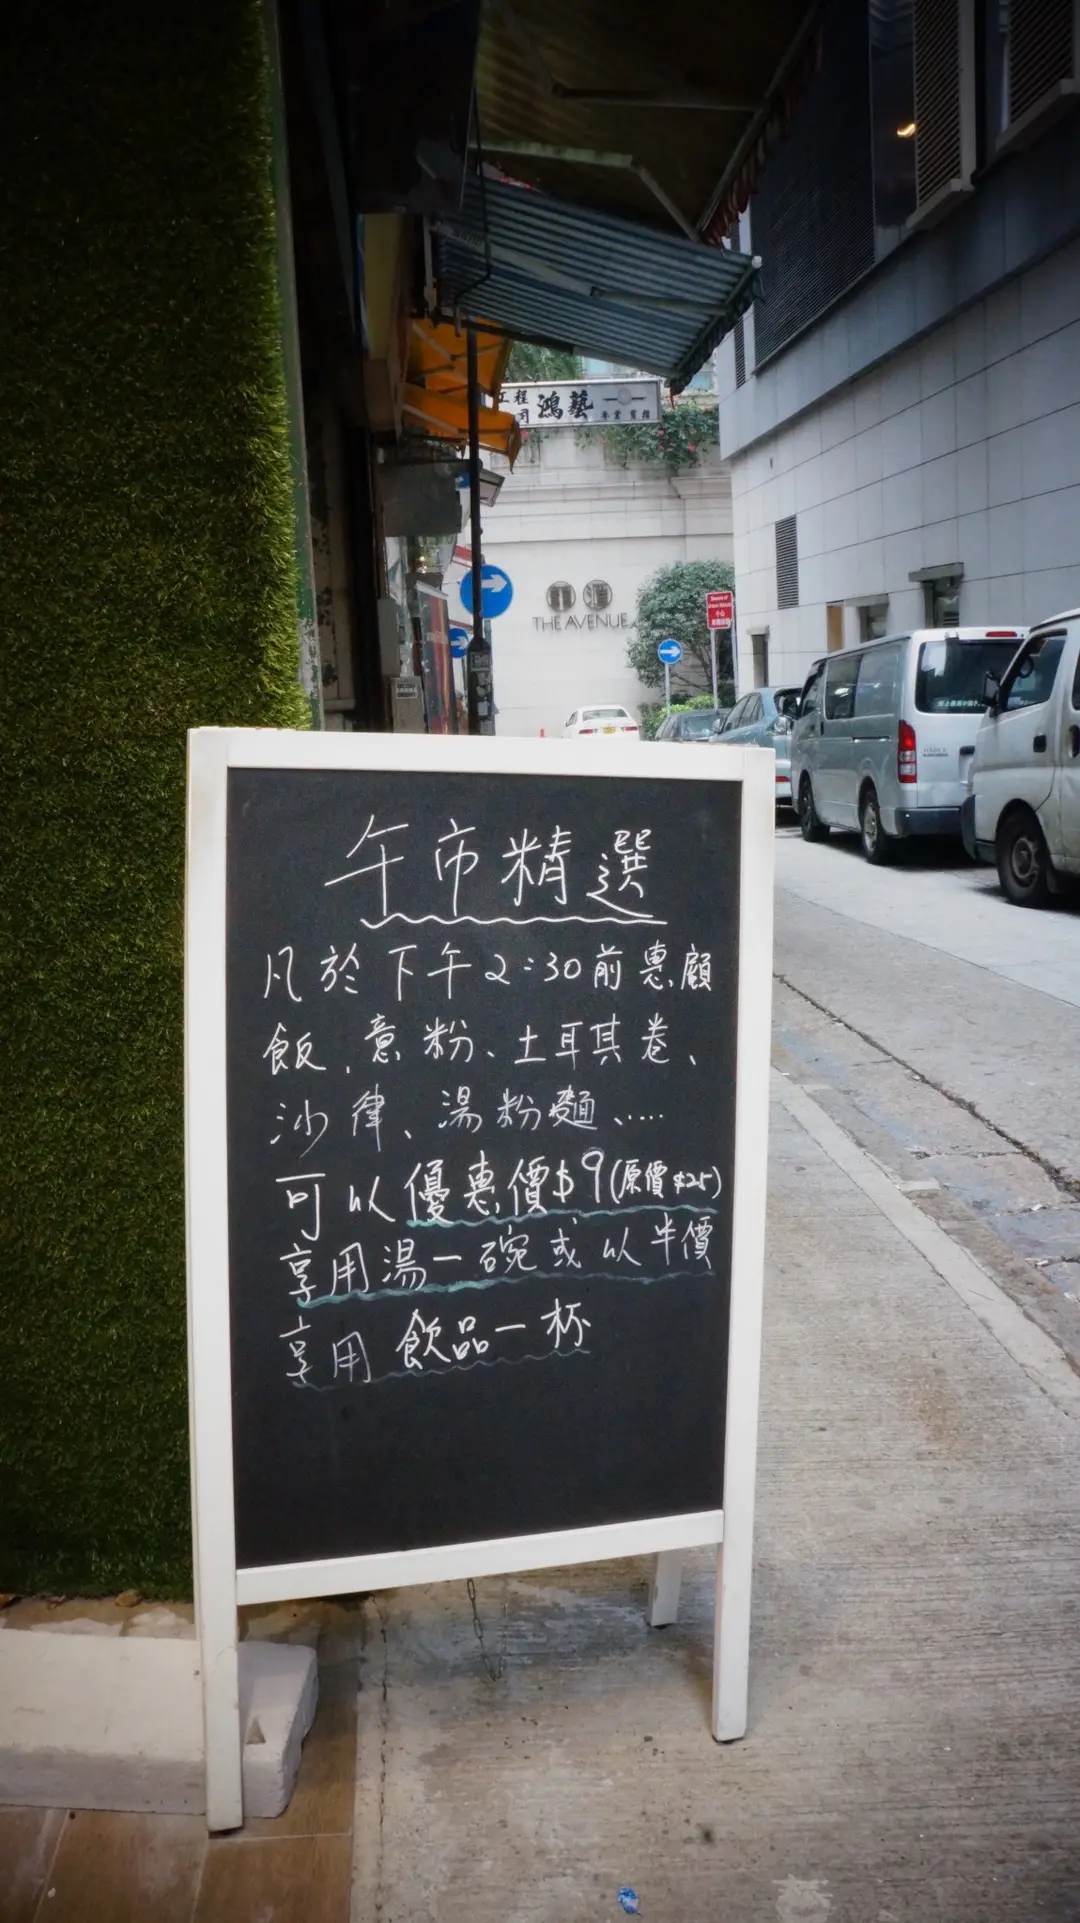 工程
司
鴻藝
THE AVENUE
小心
午市精選
凡於下午2:30前惠顧
飯、意粉、土耳其卷、
沙律、湯粉麵、.....
可以優惠價$9(原價$25)
享用湯一碗或以半價
享用飲品一杯